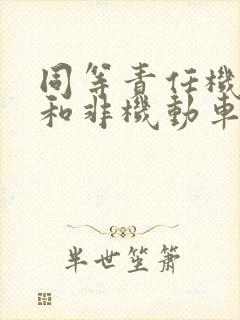 同等责任機
和非機動車
半世笙簫